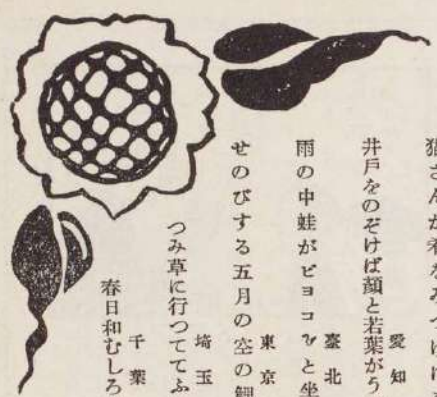 猫さんが
愛知
井戸をのぞけば顔と若葉がう
臺北
雨の中蛙がピヨコ〳〵と坐
東京
せのびする五月の空の鯉
埼玉
つみ草に行つててふ
千葉
春日和むしろ